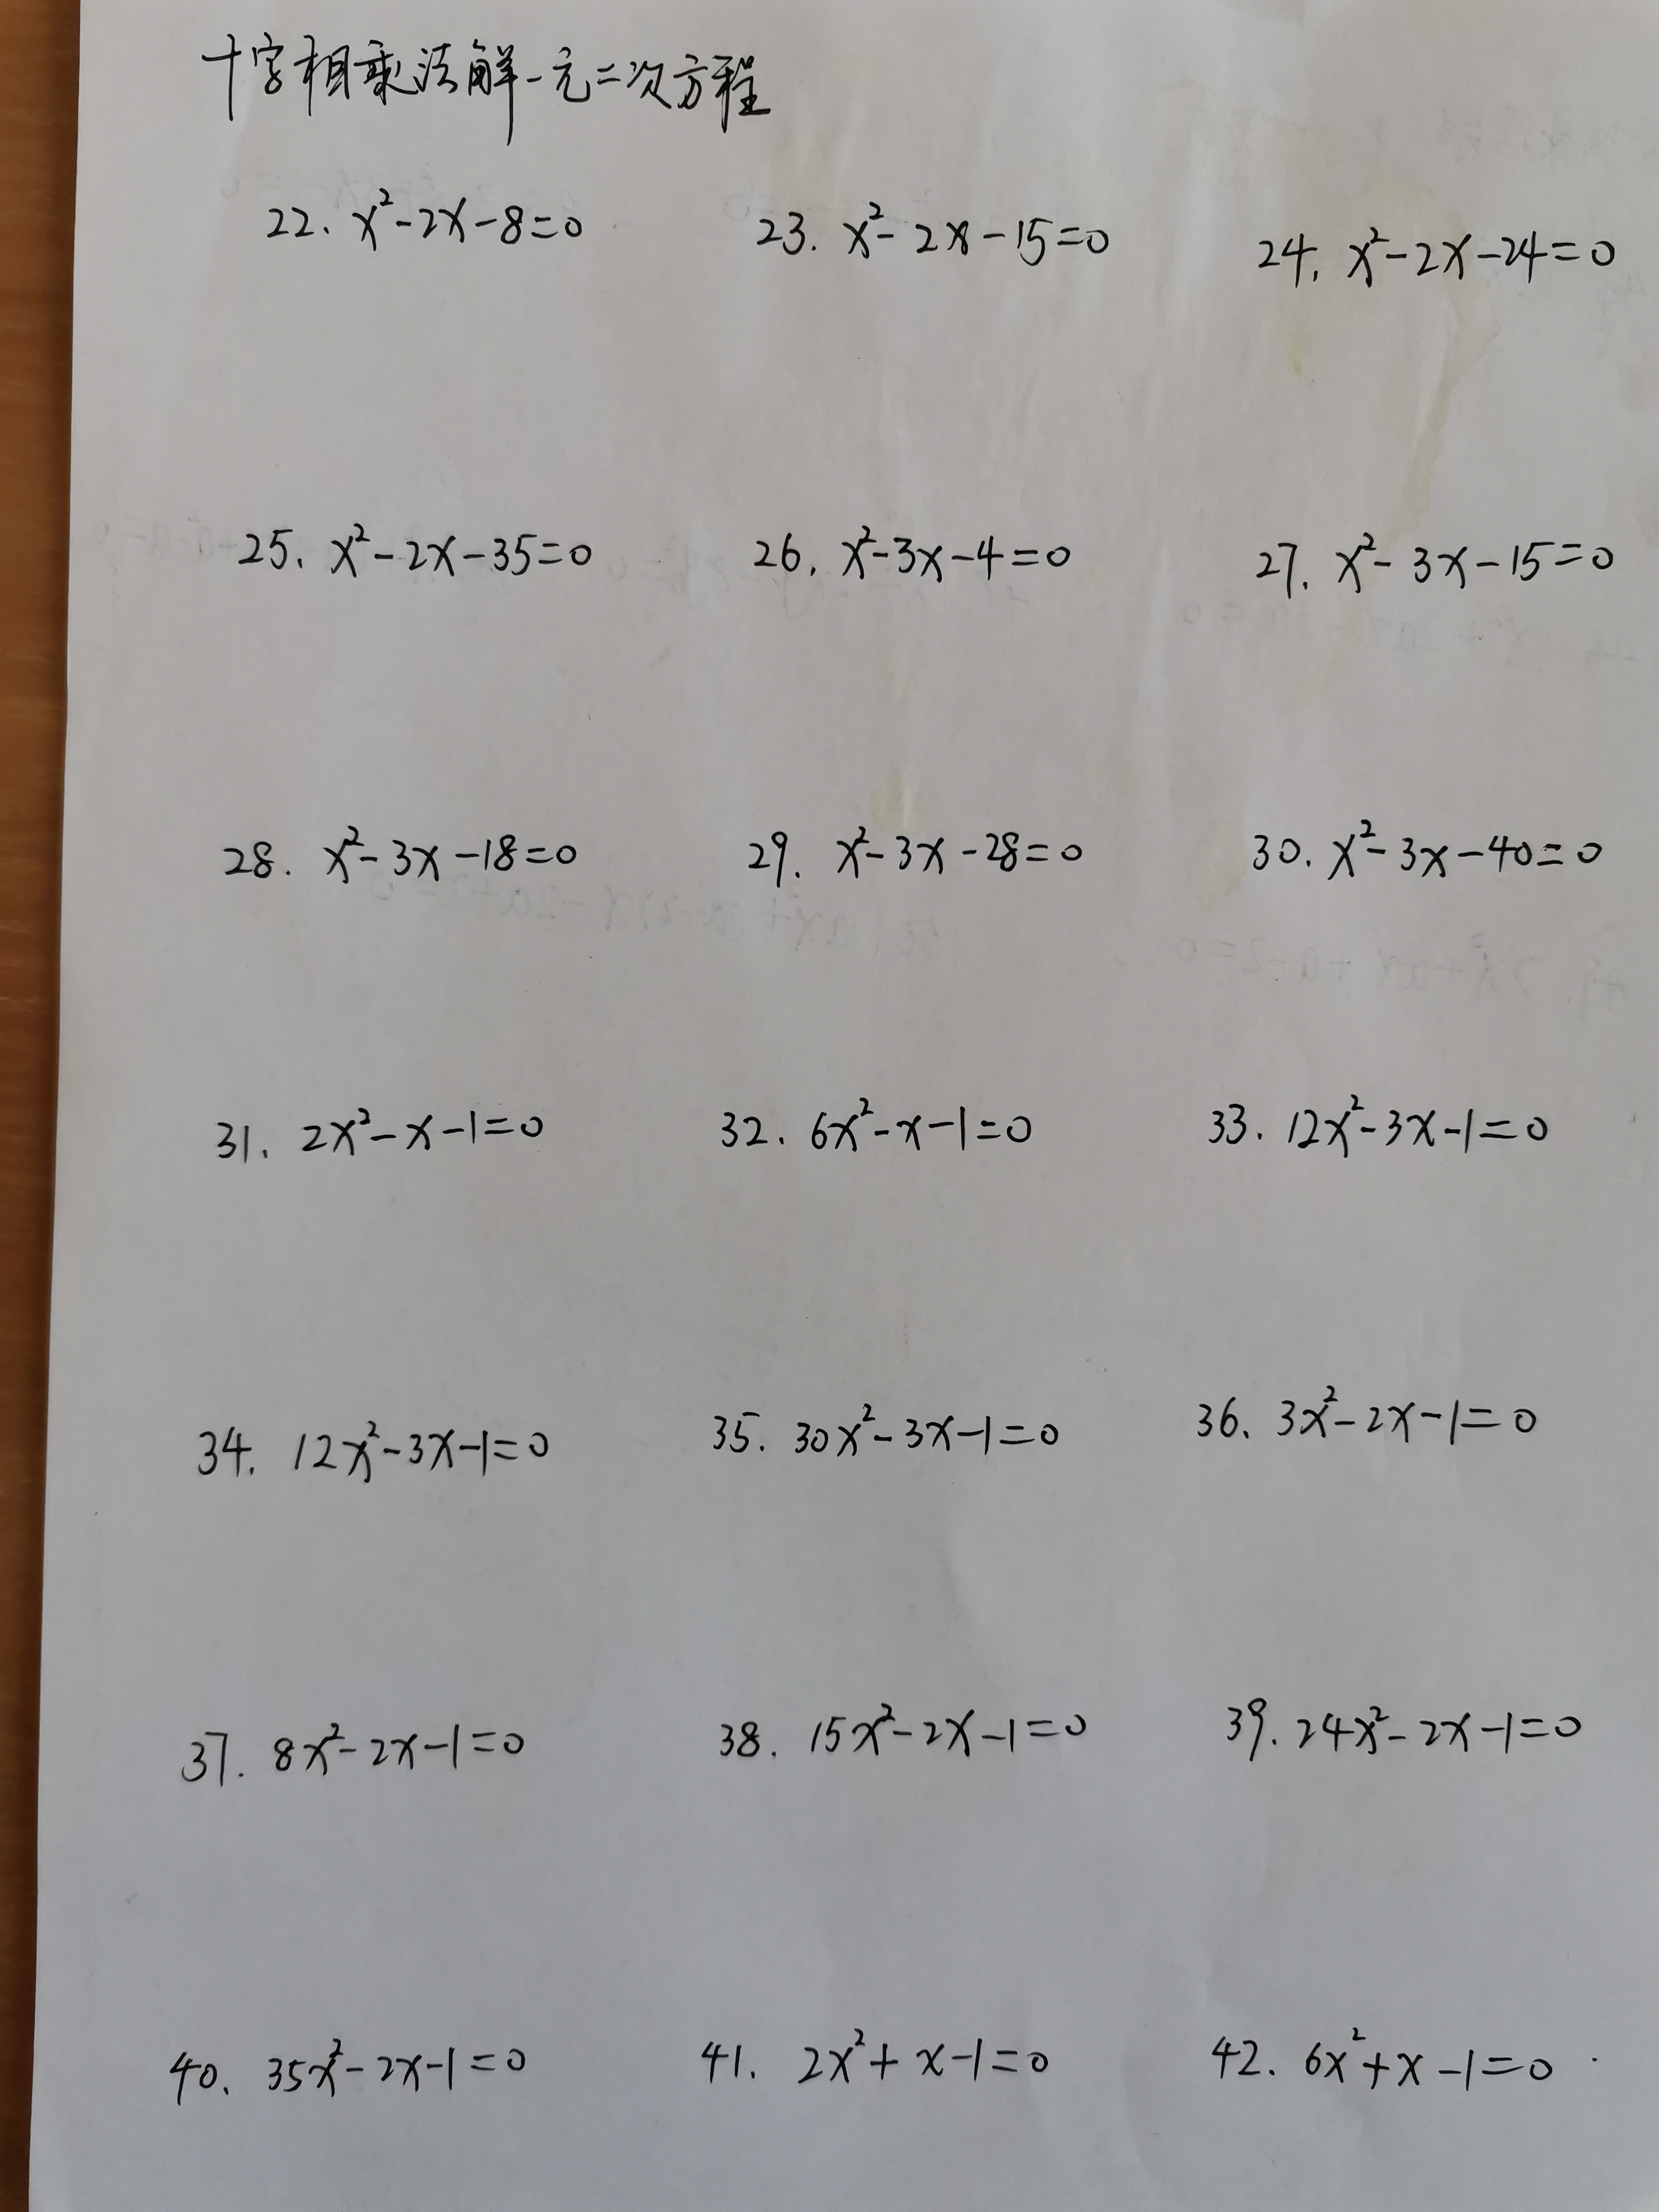 十字相乘法解一元二次方程
22. x²-2x-8=0 23. x²-2x-15=0 24. x²-2x-24=0
25. x²-2x-35=0 26. x²-3x-4=0 27. x²-3x-15=0
28. x²-3x-18=0 29. x²-3x-28=0 30. x²-3x-40=0
31. 2x²-x-1=0 32. 6x²-x-1=0 33. 12x²-3x-1=0
34. 12x²-3x-1=0 35. 30x²-3x-1=0 36. 3x²-2x-1=0
37. 8x²-2x-1=0 38. 15x²-2x-1=0 39. 24x²-2x-1=0
40. 35x²-2x-1=0 41. 2x²+x-1=0 42. 6x²+x-1=0